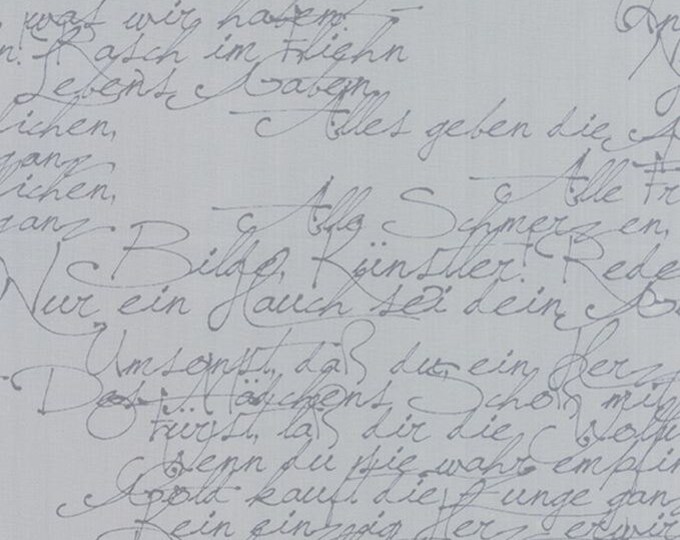 was wir haben
n. Rasch im Fliehn
Lebens Gaben
lichen,
Alles geben die
ganz
lichen,
Alle
ganz
Alle Schmerzen,
Bilde, Künstler! Rede
Nur ein Hauch sei dein
Umsonst, daß du ein Herz
Das Mädchens Schoß
Fürst, laß dir die
Wenn du nie wahr
Gold kauft die Zunge ganz
Kein einzig Herz erwir